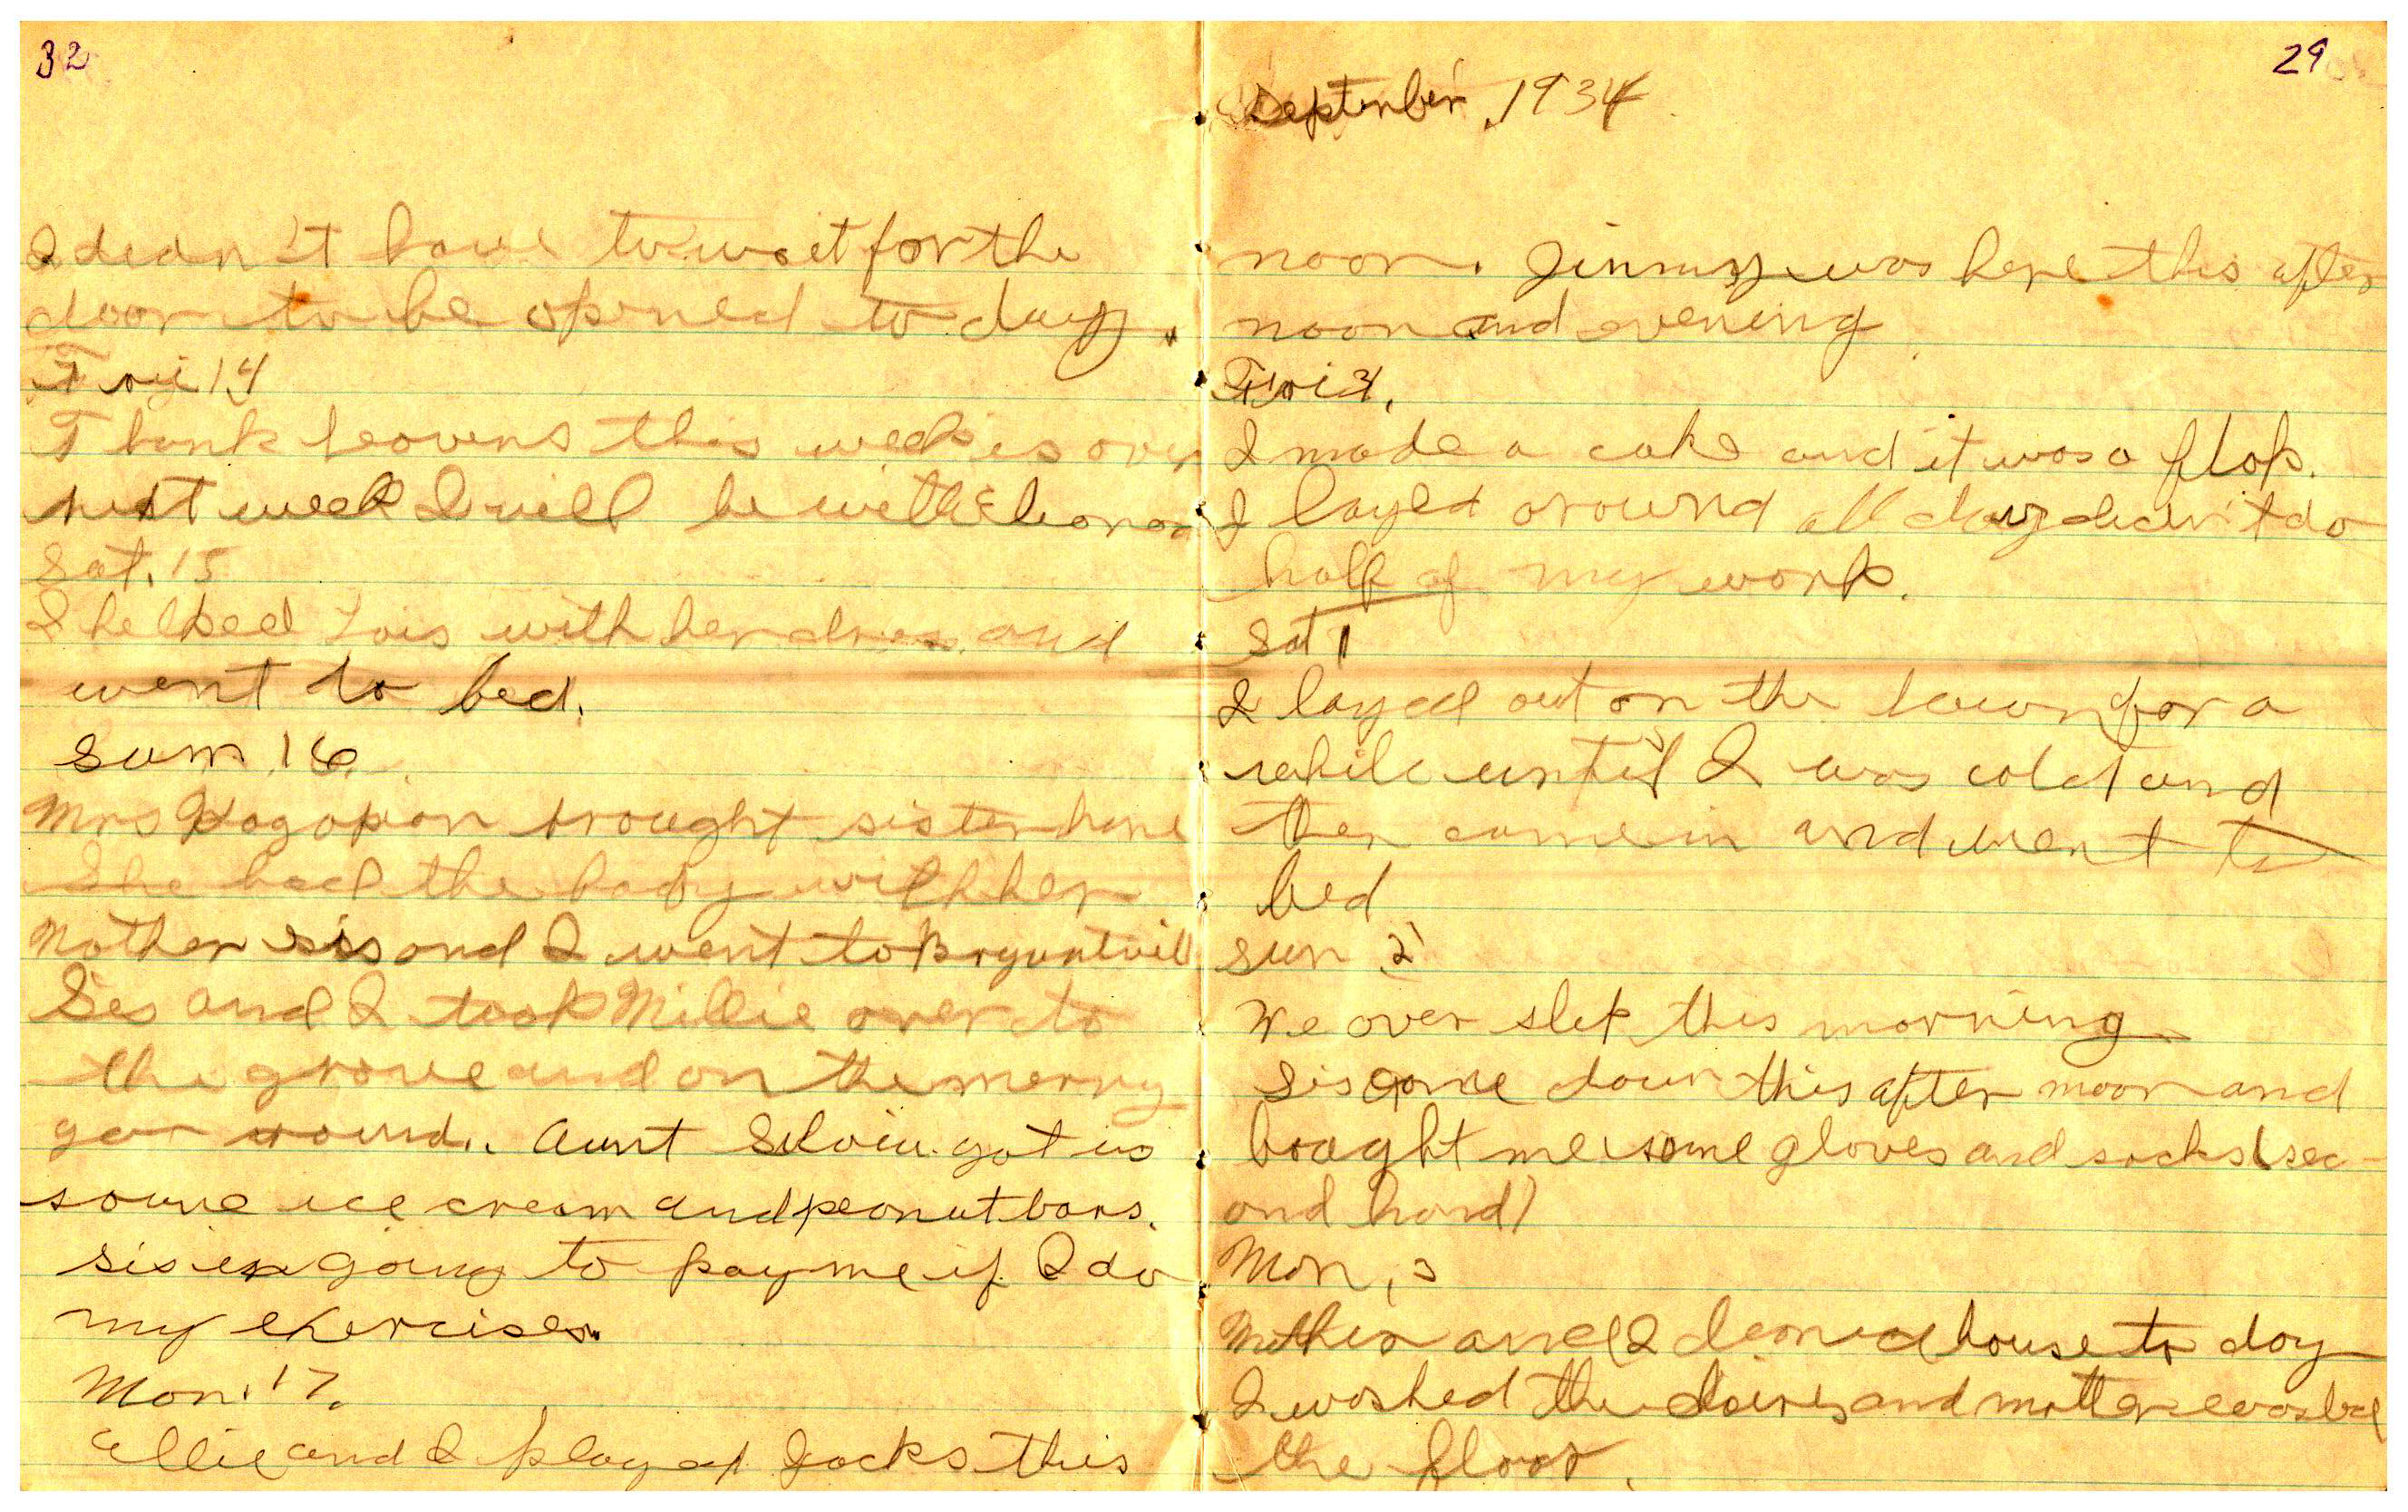 32
I didn't have to wait for the
door to be opened to day.
Fri 14
Thank heavens this week is over
next week I will be with Eleanor
Sat. 15
I helped Lois with her dress and
went to bed.
Sun 16.
Mrs Hagopian brought sister home
She had the baby with her
Mother sis and I went to Bryantvill
Sis and I took Millie over to
the grove and on the merry
go round. Aunt Silvia got us
some ice cream and peanut bars.
sis is going to pay me if I do
my exercises.
Mon. 17.
Ellie and I played Jacks this
29
September, 1934
noon. Jimmy was here this after
noon and evening
Fri
I made a cake and it was a flop.
I layed around all day didn't do
half of my work.
Sat 1
I layed out on the lawn for a
while until I was cold and
then came in and went to
bed
Sun 2
We over slep this morning
Sis came down this after noon and
bought me some gloves and socks (sec-
ond hand)
Mon, 3
Mother and I cleaned house to day
I washed the and mother washed
the floor.